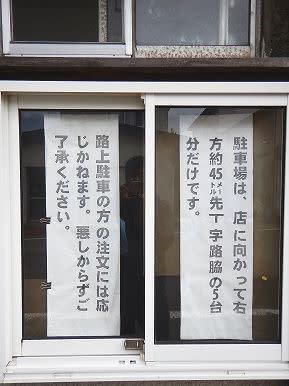 駐車場は、店に向かって右
方約45メートル先T字路脇の5台
分だけです。
路上駐車の方の注文には応
じかねます。悪しからずご
了承ください。